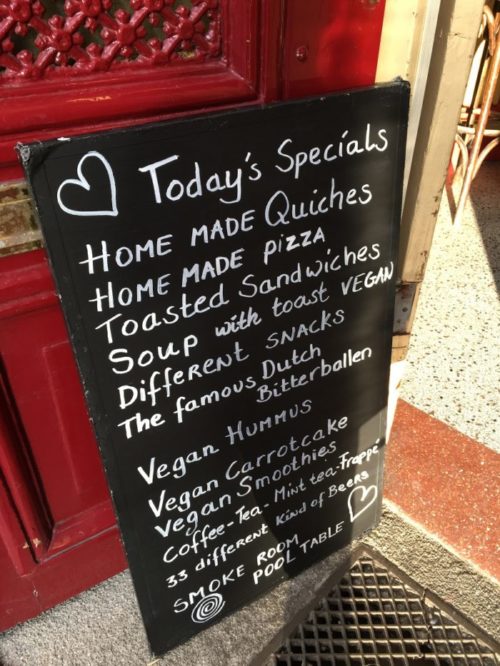 Today's Specials
HOME MADE Quiches
HOME MADE PIZZA
Toasted Sandwiches
Soup with toast VEGAN
Different SNACKS
The famous Dutch
Bitterballen
Vegan HUMMUS
Vegan Carrotcake
Vegan Smoothies
Coffee-Tea-Mint tea-Frappé
33 different Kind of Beers
SMOKE ROOM
POOL TABLE